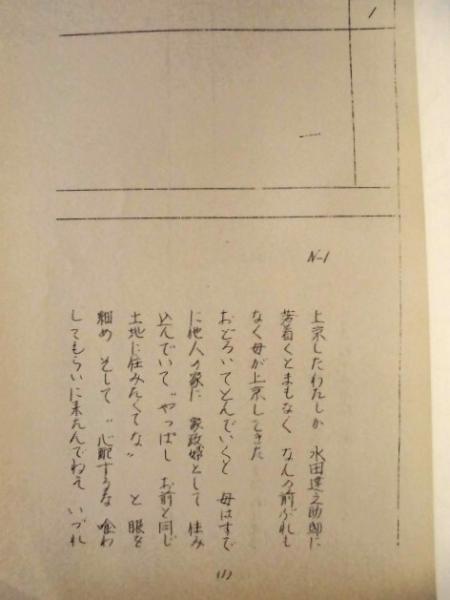 1
一
N-1
上京したわたしが 永田達之助邸に
落着くとまもなく なんの前ぶれも
なく母が上京してきた
おどろいてとんでいくと 母はすで
に他人の家に 家政婦として 住み
込んでいて〝やっぱし お前と同じ
土地に住みたくてな〟 と 眼を
細め そして〝心配するな 喰わ
してもらいに来たんでねえ いづれ
(1)